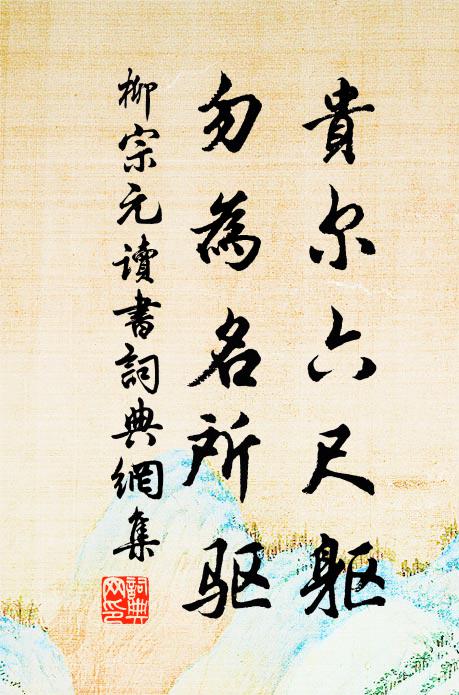 貴尔六尺軀
勿為名所驱
柳宗元讀書詞典網集
詞典